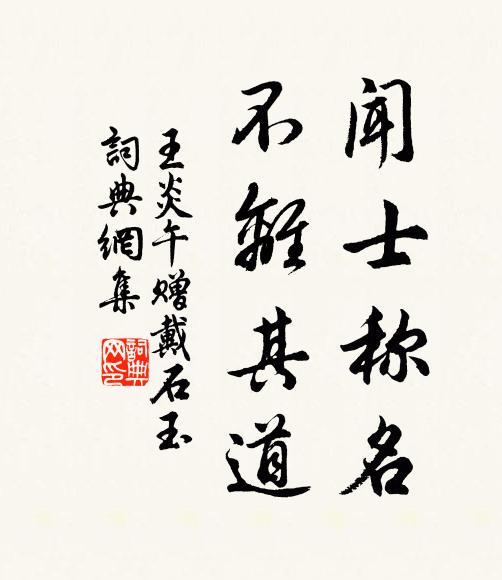 闻士称名
不離其道
王炎午赠戴石玉
詞典網集
詞典网印